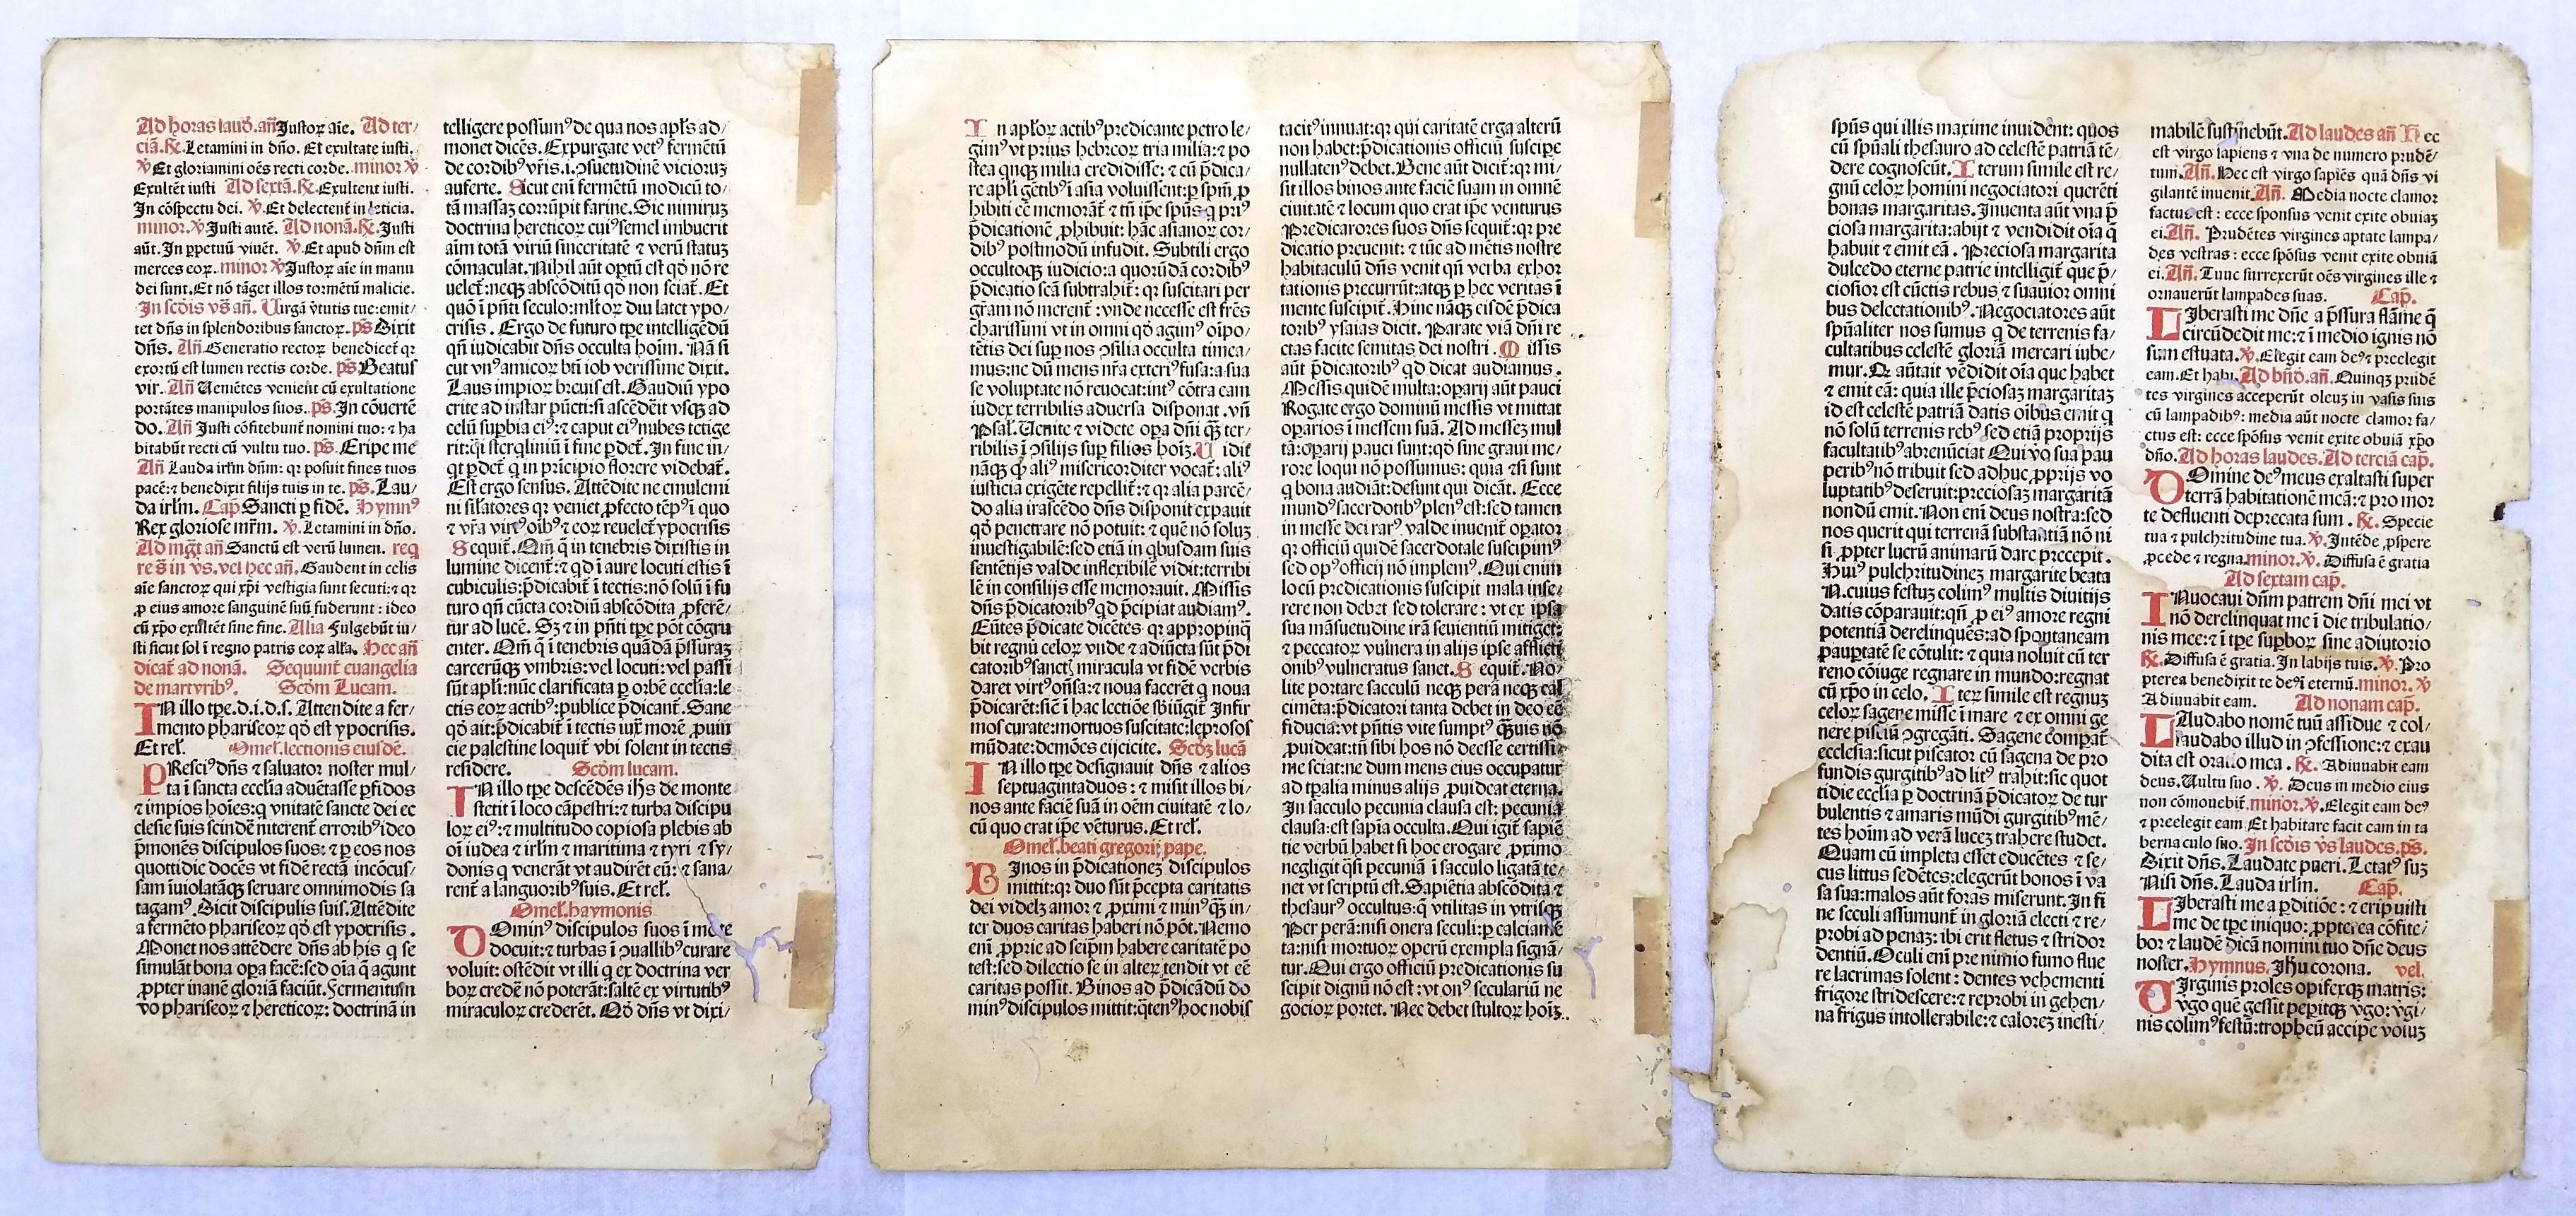 Ad horas laud̄. añ Justoꝝ aīe. Ad ter/
ciā. ℟. Letamini in dño. Et exultate iusti.
℣ Et gloriamini oēs recti corde. minor ℣
Exultēt iusti Ad sextā. ℟. Exultent iusti.
In cōspectu dei. ℣. Et delectent̄ in leticia.
minor. ℣ Justi autē. Ad nonā. ℟. Justi
aūt. In ꝑpetuū viuēt. ℣. Et apud dn̄m est
merces eoꝝ. minor ℣ Justoꝝ aīe in manu
dei sunt. Et nō tāget illos tormētū malicie.
In scd̄is vs̄ añ. Uirgā v̄tutis tue: emit/
tet dn̄s in splendoribus sanctoꝝ. ps̄ Dixit
dn̄s. Añ Generatio rectoꝝ benedicet̄ qꝛ
exortū est lumen rectis corde. ps̄. Beatus
vir. Añ Uenietēs venient cū exultatione
portātes manipulos suos. ps̄. In cōuertē
do. Añ Justi cōfitebunt̄ nomini tuo: ⁊ ha
bitabūt recti cū vultu tuo. ps̄. Eripe me
Añ Lauda irl̄m dn̄m: qꝛ posuit fines tuos
pacē: ⁊ benedixit filijs tuis in te. ps̄. Lau/
da irl̄m. Cap̄ Sancti ꝑ fidē. Hymnꝰ
Rex gloriose mr̄m. ℣. Letamini in dño.
Ad mgt̄ añ Sanctū est verū lumen. req
re s̄ in vs̄. vel hec añ. Gaudent in celis
aīe sanctoꝝ qui xp̄i vestigia sunt secuti: ⁊ qꝛ
ꝓ eius amore sanguinē suū fuderunt: ideo
cū xp̄o exultēt sine fine. Alia Fulgebūt iu/
sti sicut sol ī regno patris eoꝝ alla. Hec añ
dicat̄ ad nonā. Sequunt̄ euangelia
de martyribꝰ. Scd̄m Lucam.
IN illo tp̄e. d. i. d. s. Attendite a fer/
mento phariseoꝝ qd̄ est ypocrisis.
Et rel̄. Omel̄. lectionis eiusdē.
PResciꝰ dn̄s ⁊ saluator noster mul/
ta ī sancta ecclīa aduētasse ꝑfidos
⁊ impios hoīes: q̄ vnitatē sancte dei ec
clesie suis scindē niterent̄ erroribꝰ ideo
p̄mones discipulos suos: ⁊ ꝑ eos nos
quottidie docēs vt fidē rectā incōcus/
sam īuiolatāqꝫ seruare omnimodis sa
tagamꝰ. Dicit discipulis suis. Attēdite
a fermēto phariseoꝝ qd̄ est ypocrisis.
Monet nos attēdere dn̄s ab his q̄ se
simulāt bona oꝑa facē: sed oīa q̄ agunt
ꝓpter inanē gloriā faciūt. Fermentum
vo phariseoꝝ ⁊ hereticoꝝ: doctrinā in
telligere possumꝰ de qua nos apl̄s ad/
monet dicēs. Expurgate vetꝰ fermētū
de cordibꝰ vr̄is. i. ꝯsuetudinē vicioruꝫ
auferte. Sicut eni fermētū modicū to/
tā massaꝫ corrūpit farine. Sic nimiruꝫ
doctrina hereticoꝝ cuiꝰ semel imbuerit
aīm totā viriū sinceritatē ⁊ verū statuꝫ
cōmaculat. Nihil aūt oꝑtū est qd̄ nō re
uelet̄: neqꝫ abscōditū qd̄ non sciat̄. Et
quō ī pn̄ti seculo: ml̄toꝝ diu latet ypo/
crisis. Ergo de futuro tp̄e intelligēdū
qn̄ iudicabit dn̄s occulta hoīm. Nā si
cut vnꝰ amicoꝝ bt̄i iob verissime dixit.
Laus impioꝝ breuis est. Gaudiū ypo
crite ad instar pūcti: si ascēdēit vsqꝫ ad
celū suꝑbia eiꝰ: ⁊ caput eiꝰ nubes tetige
rit: q̄si sterq̄liniū ī fine ꝑdet̄. In fine in/
qt ꝑdet̄ q̄ in prīcipio florere videbat̄.
Est ergo sensus. Attēdite ne emulemi
ni silatores qꝛ veniet ꝓfecto tēpꝰ ī quo
⁊ vr̄a virtꝰ oībꝰ ⁊ eoꝝ reuelet̄ ypocrisis
Sequit̄. Qm̄ q̄ in tenebris dixistis in
lumine dicent̄: ⁊ qd̄ ī aure locuti estis ī
cubiculis: p̄dicabit̄ ī tectis: nō solū ī fu
turo qn̄ cūcta cordiū abscōdita ꝓferē/
tur ad lucē. Sꝫ ⁊ in pn̄ti tp̄e pōt cōgru
enter. Qm̄ q̄ ī tenebris quādā p̄ssuraꝫ
carcerūqꝫ vmbris: vel locuti: vel passi
sūt apl̄i: nūc clarificata ꝑ orbē ecclīa: le
ctis eoꝝ actibꝰ: publice p̄dicant̄. Sane
qd̄ ait: p̄dicabit̄ ī tectis iuꝝ morē ꝓuin
cie palestine loquit̄ vbi solent in tectis
residere. Scd̄m lucam.
IN illo tp̄e descēdēs ih̄s de monte
stetit ī loco cāpestri: ⁊ turba discipu
loꝝ eiꝰ: ⁊ multitudo copiosa plebis ab
oī iudea ⁊ irl̄m ⁊ maritima ⁊ tyri ⁊ sy/
donis q̄ venerāt vt audirēt eū: ⁊ sana/
rent̄ a languoribꝰ suis. Et rel̄.
Omel̄. haymonis
DOminꝰ discipulos suos ī mōte
docuit: ⁊ turbas ī ꝯuallibꝰ curare
voluit: ostēdit vt illi q̄ ex doctrina ver
boꝝ credē nō poterāt: saltē ex virtutibꝰ
miraculoꝝ crederēt. Qd̄ dn̄s vt dixi/
In apl̄oꝝ actibꝰ predicante petro le/
gimꝰ vt prius hebreoꝝ tria milia: ⁊ po
stea qnqꝫ milia credidisse: ⁊ cū p̄dica/
re apl̄i gētibꝰ ī asia voluissent: ꝑ spm̄ ꝓ
hibiti eē memorāt̄ ⁊ tn̄ ip̄e spūs q̄ priꝰ
p̄dicationē ꝓhibuit: hāc asianoꝝ cor/
dibꝰ postmodū infudit. Subtili ergo
occultoqꝫ iudicio: a quorūdā cordibꝰ
p̄dicatio scā subtrahit̄: qꝛ suscitari per
gr̄am nō merent̄: vnde necesse est fr̄es
charissimi vt in omni qd̄ agimꝰ oīpo/
tētis dei suꝑ nos ꝯsilia occulta timea/
mus: ne dū mens nr̄a exteriꝰ fusa: a sua
se voluptate nō reuocat: intꝰ cōtra eam
iudex terribilis aduersa disponat. vn̄
Psal̄. Uenite ⁊ videte oꝑa dn̄i q̄ꝫ ter/
ribilis ī ꝯsilijs suꝑ filios hoīꝫ. Uidit
nāqꝫ qꝙ aliꝰ misericorditer vocat̄: aliꝰ
iusticia exigēte repellit̄: ⁊ qꝛ alia parcē/
do alia irascēdo dn̄s disponit expauit
qd̄ penetrare nō potuit: ⁊ quē nō soluꝫ
inuestigabilē: sed etiā in qbusdam suis
sentētijs valde inflexibilē vidit: terribi
lē in consilijs esse memorauit. Missis
dn̄s p̄dicatoribꝰ qd p̄cipiat audiamꝰ.
Eūtes p̄dicate dicētes qꝛ appropinq̄
bit regnū celoꝝ vnde ⁊ adiūcta sūt p̄di
catoribꝰ sanctꝭ miracula vt fidē verbis
daret virtꝰ on̄sa: ⁊ noua facerēt q̄ noua
p̄dicarēt: sic̄ ī hac lectiōe sb̄iūgit̄ Infir
mos curate: mortuos suscitate: leprosos
mūdate: demōes eijcicite. Scd̄ꝫ lucā
IN illo tp̄e designauit dn̄s ⁊ alios
septuagintaduos: ⁊ misit illos bi/
nos ante faciē suā in oēm ciuitatē ⁊ lo/
cū quo erat ip̄e vēturus. Et rel̄.
Omel̄. beati gregorij pape.
BInos in p̄dicationeꝫ discipulos
mittit: qꝛ duo sūt p̄cepta caritatis
dei videlꝫ amor ⁊ ꝓximi ⁊ minꝰ q̄ꝫ in/
ter duos caritas haberi nō pōt. Nemo
eni ꝓprie ad seip̄m habere caritatē po
test: sed dilectio se in alteꝝ tendit vt eē
caritas possit. Binos ad p̄dicādū do
minꝰ discipulos mittit: q̄tenꝰ hoc nobis
tacitꝰ innuat: qꝛ qui caritatē erga alterū
non habet: p̄dicationis officiū suscipe
nullatenꝰ debet. Bene aūt dicit̄: qꝛ mi/
sit illos binos ante faciē suam in omnē
ciuitatē ⁊ locum quo erat ip̄e venturus
Predicarores suos dn̄s sequit̄: qꝛ pre
dicatio preuenit: ⁊ tūc ad mētis nostre
habitaculū dn̄s venit qn̄ verba exhor
tationis precurrūt: atqꝫ ꝑ hec veritas ī
mente suscipit̄. Hinc nāqꝫ eisdē p̄dica
toribꝰ ysaias dicit. Parate viā dn̄i re
ctas facite semitas dei nostri. Missis
aūt p̄dicatoribꝰ qd dicat audiamus.
Messis quidē multa: oꝑarij aūt pauci
Rogate ergo dominū messis vt mittat
oꝑarios ī messem suā. Ad messeꝫ mul
tā: oꝑarij pauci sunt: qd̄ sine graui me/
rore loqui nō possumus: quia ⁊si sunt
q̄ bona audiāt: desunt qui dicāt. Ecce
mundꝰ sacerdotibꝰ plenꝰ est: sed tamen
in messe dei rarꝰ valde inuenit̄ oꝑator
qꝛ officiū quidē sacerdotale suscipimꝰ
sed opꝰ officij nō implemꝰ. Qui enim
locū predicationis suscipit mala infe/
rere non debet sed tolerare: vt ex ipsa
sua māsuetudine irā seuientiū mitiget:
⁊ peccatoꝝ vulnera in alijs ipse afflicti
onibꝰ vulneratus sanet. Sequit̄. No/
lite portare sacculū neqꝫ perā neqꝫ cal
ciamēta: p̄dicatori tanta debet in deo eē
fiducia: vt pn̄tis vite sumptꝰ q̄ꝫuis nō
ꝓuideat: tn̄ sibi hos nō deesse certissi/
me sciat: ne dum mens eius occupatur
ad tꝑalia minus alijs ꝓuideat eterna.
In sacculo pecunia clausa est: pecunia
clausa: est sapīa occulta. Qui igit̄ sapiē
tie verbū habet si hoc erogare ꝓximo
negligit q̄si pecuniā ī sacculo ligatā te/
net vt scriptū est. Sapiētia abscōdita ⁊
thesaurꝰ occultus: q̄ vtilitas in vtrisqꝫ
Per perā: nisi onera seculi: ꝑ calciamē
ta: nisi mortuoꝝ operū exempla signā/
tur. Qui ergo officiū predicationis su
scipit dignū nō est: vt onꝰ seculariū ne
gocioꝝ portet. Nec debet stultoꝝ hoīꝫ.
spūs qui illis maxime inuident: quos
cū spūali thesauro ad celestē patriā tē/
dere cognoscūt. Iterum simile est re/
gnū celoꝝ homini negociatori querēti
bonas margaritas. Inuenta aūt vna p̄
ciosa margarita: abijt ⁊ vendidit oīa q̄
habuit ⁊ emit eā. Preciosa margarita
dulcedo eterne patrie intelligit̄ que p̄/
ciosior est cūctis rebus ⁊ suauior omni
bus delectationibꝰ. Negociatores aūt
spūaliter nos sumus q̄ de terrenis fa/
cultatibus celestē gloriā mercari iube/
mur. Qꝛ autait vēdidit oīa que habet
⁊ emit eā: quia ille p̄ciosaꝫ margaritaꝫ
id est celestē patriā datis oībus emit q̄
nō solū terrenis rebꝰ sed etiā proprijs
facultatibꝰ abrenūciat Qui vo sua pau
peribꝰ nō tribuit sed adhuc ꝓprijs vo
luptatibꝰ deseruit: preciosaꝫ margaritā
nondū emit. Non eni deus nostra: sed
nos querit qui terrenā substantiā nō ni
si ꝓpter lucrū animarū dare precepit.
Huiꝰ pulchritudineꝫ margarite beata
N. cuius festuꝫ colimꝰ multis diuitijs
datis cōparauit: qn̄ ꝑ eiꝰ amore regni
potentiā derelinquēs: ad spontaneam
pauꝑtatē se cōtulit: ⁊ quia noluit cū ter
reno cōiuge regnare in mundo: regnat
cū xp̄o in celo. Iteꝝ simile est regnuꝫ
celoꝝ sagene misse ī mare ⁊ ex omni ge
nere pisciū ꝯgregāti. Sagene cōparat̄
ecclesia: sicut piscator cū sagena de pro
fundis gurgitibꝰ ad litꝰ trahit: sic quot
tidie ecclīa ꝑ doctrinā p̄dicatoꝝ de tur
bulentis ⁊ amaris mūdi gurgitibꝰ mē/
tes hoīm ad verā luceꝫ trahere studet.
Quam cū impleta esset educētes ⁊ se/
cus littus sedētes: elegerūt bonos ī va
sa sua: malos aūt foras miserunt. In fi
ne seculi assumunt̄ in gloriā electi ⁊ re/
probi ad penaꝫ: ibi erit fletus ⁊ stridor
dentiū. Oculi eni pre nimio fumo flue
re lacrimas solent: dentes vehementi
frigore stridescere: ⁊ reprobi in gehen/
na frigus intollerabile: ⁊ caloreꝫ inesti/
mabilē sustinebūt. Ad laudes añ Hec
est virgo sapiens ⁊ vna de numero prudē/
tum. Añ. Hec est virgo sapiēs quā dn̄s vi
gilantē inuenit. Añ. Media nocte clamor
factus est: ecce sponsus venit exite obuiaꝫ
ei. Añ. Prudētes virgines aptate lampa/
des vestras: ecce spōsus venit exite obuiā
ei. Añ. Tunc surrexerūt oēs virgines ille ⁊
ornauerūt lampades suas. Cap̄.
LIberasti me dn̄e a p̄ssura flāme q̄
circūdedit me: ⁊ ī medio ignis nō
sum estuata. ℣. Elegit eam deꝰ ⁊ preelegit
eam. Et habi. Ad bn̄d̄. añ. Quinqꝫ prudē
tes virgines acceperūt oleuꝫ in vasis suis
cū lampadibꝰ: media aūt nocte clamor fa/
ctus est: ecce spōsus venit exite obuiā xp̄o
dño. Ad horas laudes. Ad terciā cap̄.
DOmine deꝰ meus exaltasti super
terrā habitationē meā: ⁊ pro mor
te defluenti deprecata sum. ℟. Specie
tua ⁊ pulchritudine tua. ℣. Intēde ꝓspere
ꝓcede ⁊ regna. minor. ℣. Diffusa ē gratia
Ad sextam cap̄.
INuocaui dn̄m patrem dn̄i mei vt
nō derelinquat me ī die tribulatio/
nis mee: ⁊ ī tp̄e suꝑboꝝ sine adiutorio
℟. Diffusa ē gratia. In labijs tuis. ℣. Pro
pterea benedixit te deꝰ ī eternū. minor. ℣
Adiuuabit eam. Ad nonam cap̄.
LAudabo nomē tuū assidue ⁊ col/
laudabo illud in ꝯfessione: ⁊ exau
dita est oratio mea. ℟. Adiuuabit eam
deus. Uultu suo. ℣. Deus in medio eius
non cōmouebit̄. minor. ℣. Elegit eam deꝰ
⁊ preelegit eam. Et habitare facit eam in ta
bernaculo suo. In scd̄is vs̄ laudes. ps̄.
Dixit dn̄s. Laudate pueri. Letatꝰ suꝫ
Nisi dn̄s. Lauda irl̄m. Cap̄.
LIberasti me a ꝑditiōe: ⁊ eripuisti
me de tp̄e iniquo: ꝓpterea cōfite/
bor ⁊ laudē dicā nomini tuo dn̄e deus
noster. Hymnus. Jh̄u corona. vel.
UIrginis proles opifexqꝫ matris:
v̄go quē gessit peꝑitqꝫ v̄go: v̄gi/
nis colimꝰ festū: tropheū accipe votuꝫ